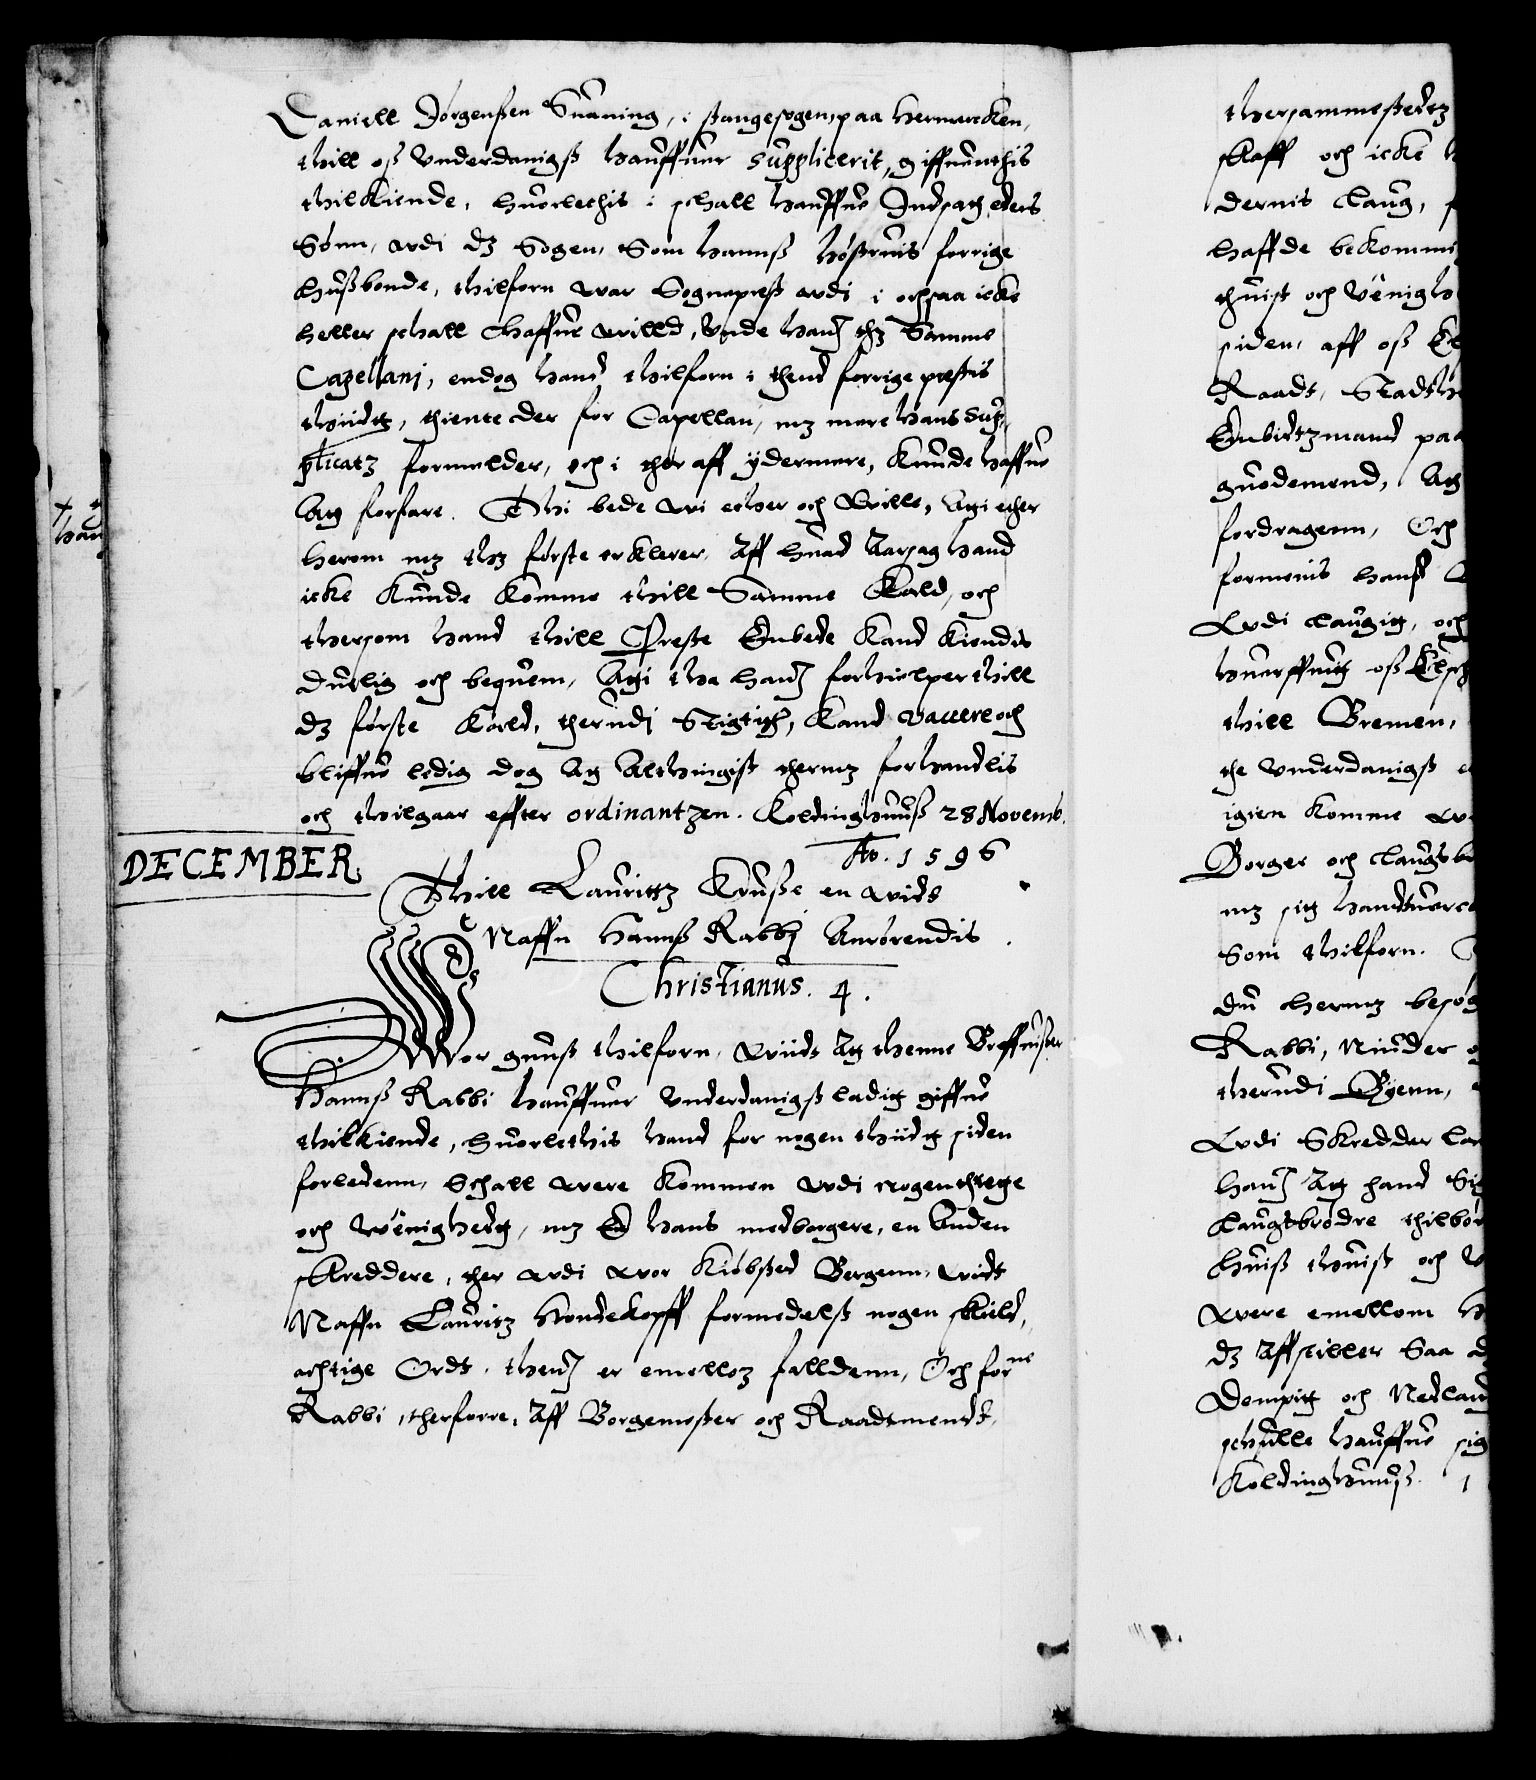 Daniell Jörgenßen Suaning, i stangesogen, paa Hermarcken,
thill oß Vnderdanigß hauffuer Supplicerit, giffuendhis
thilkiende, huorlethis i schall hauffue Indsath eders
Sönn, vdi dz Sogen, Som hannß höstruis forrige
hußbonde, thilforn war Sognepreß vdi, i ochsaa icke
heller schall haffue willd, Vnde han thz Samme
Capellanj, endog hand thilforn i thend forrige prestis
thiidt, thiente der for Capellan, mz mere hans Sup-
plicatz formelder, och i ther aff ydermere, Kunde haffue
At forfare. Thi bede wi ether och Wille, At i ether
herom mz thz förste erklerer, Aff huad Aarsag hand
icke Kunde Komme thill Samme Kald, och
thersom hand thill Preste Embede Kand Kiendis
duelig och bequem, At i tha hanj forhielper thill
dz förste Kald, therudj Stigtith, Kand vaccere och
bliffue ledig dog At Althingist thermz forhandlis
och thilgaar effter ordinantzen. Koldinghuuß 28 Novemb.
Ao. 1596
DECEMBER
Thill Lauritz Kruße en wids
Naffn Hannß Rabbj Anrörendis.
Christianus. 4.
Wor gunst thilforn, Wiids At thenne Breffuißer
Hannß Rabbi hauffuer Vnderdanigß ladit giffue
thilkiende, huorlethis hand for nogen thiidt siden
forledenn, Schall were Kommen vdi nogen threte
och Wenighedt, mz Ed hans medborgere, en Anden
skreddere, ther vdi wor Kiöbsted Bergenn, widt
Naffn Lauritz Hondekopff formedelß nogen skield,
achtige Ordt, thenj er emellom falldenn, Och forne
Rabbi, therforre, Aff Borgemester och Raadtmendt,
thersammestedtz
skaff och icke
dernis Laug,
haffde bekommi
thuist och Venigh
siden, aff oß
Raadt, Stadth
Embidtzmand paa
guodemend, At
fordragenn, Och
formenis hanß
Vdi Laugit, och
huorffuit oß
thill Bremen,
the Vnderdanigß
igien Komme
Borger och Laugsb
mz sit handtuerc
Som thilforn.
du hermz besög
Rabbi, Minder
therudi Byenn,
Vdi Skredder La
hanj At hand
Laugsbrödre thilbör
huiß thuist och
were emellom
dz Affstiller Saa
Dempit och Nedland
schulle hauffue sig
Koldinghuuß. 1